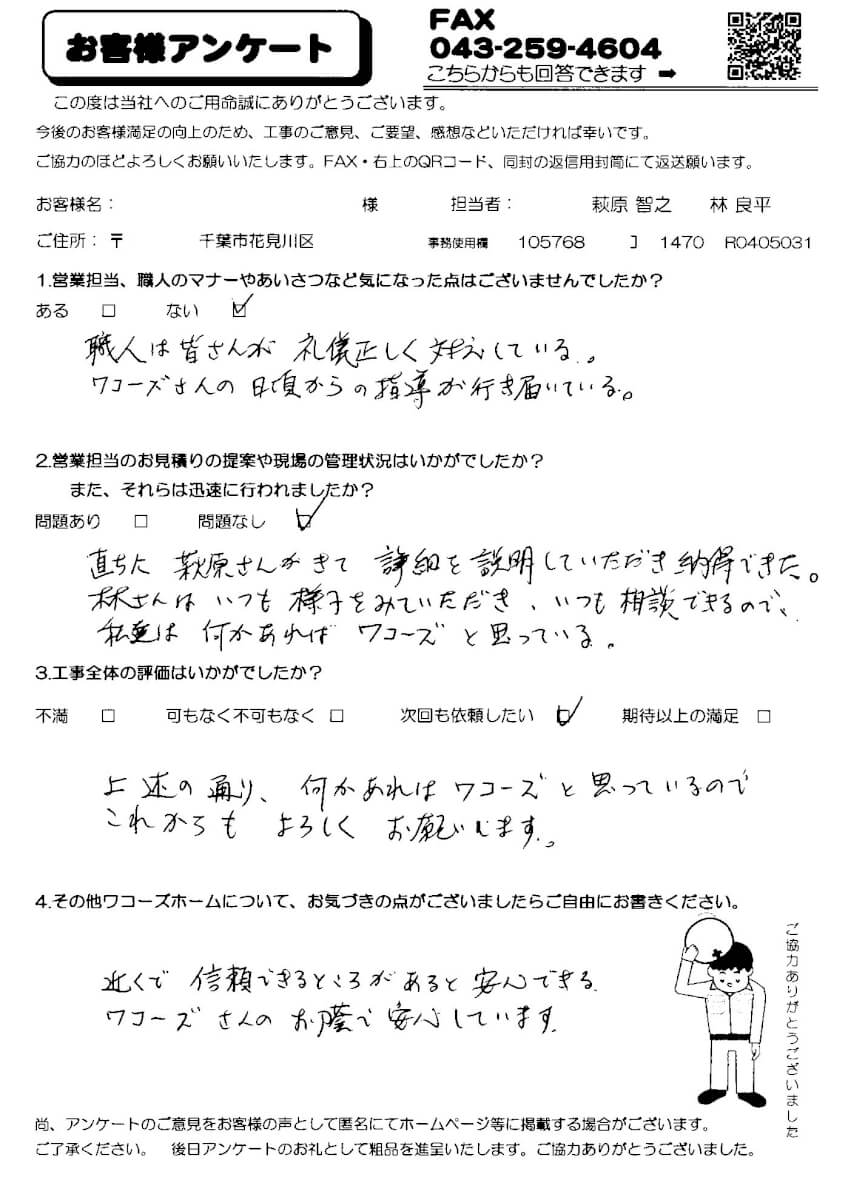 お客様アンケート
FAX
043-259-4604
こちらからも回答できます ➡
この度は当社へのご用命誠にありがとうございます。
今後のお客様満足の向上のため、工事のご意見、ご要望、感想などいただければ幸いです。
ご協力のほどよろしくお願いいたします。FAX・右上のQRコード、同封の返信用封筒にて返送願います。
お客様名: 様 担当者: 萩原 智之 林 良平
ご住所:〒 千葉市花見川区 事務使用欄 105768 ] 1470 R0405031
1.営業担当、職人のマナーやあいさつなど気になった点はございませんでしたか?
ある □ ない ☑
職人は皆さんが 礼儀正しく 対応している。
ワコーズさんの 日頃からの指導が行き届いている。
2.営業担当のお見積りの提案や現場の管理状況はいかがでしたか?
また、それらは迅速に行われましたか?
問題あり □ 問題なし ☑
直ちに 萩原さんがきて 詳細を説明していただき納得できた。
林さんは いつも 様子をみていただき、いつも相談できるので、
私達は 何かあれば ワコーズ と思っている。
3.工事全体の評価はいかがでしたか?
不満 □ 可もなく不可もなく □ 次回も依頼したい ☑ 期待以上の満足 □
上述の通り、何かあれば ワコーズ と思っているので
これからも よろしく お願いします。
4.その他ワコーズホームについて、お気づきの点がございましたらご自由にお書きください。
近くで 信頼できるところがあると 安心できる
ワコーズ さんの お陰で 安心しています。
ご協力ありがとうございました
尚、アンケートのご意見をお客様の声として匿名にてホームページ等に掲載する場合がございます。
ご了承ください。 後日アンケートのお礼として粗品を進呈いたします。ご協力ありがとうございました。